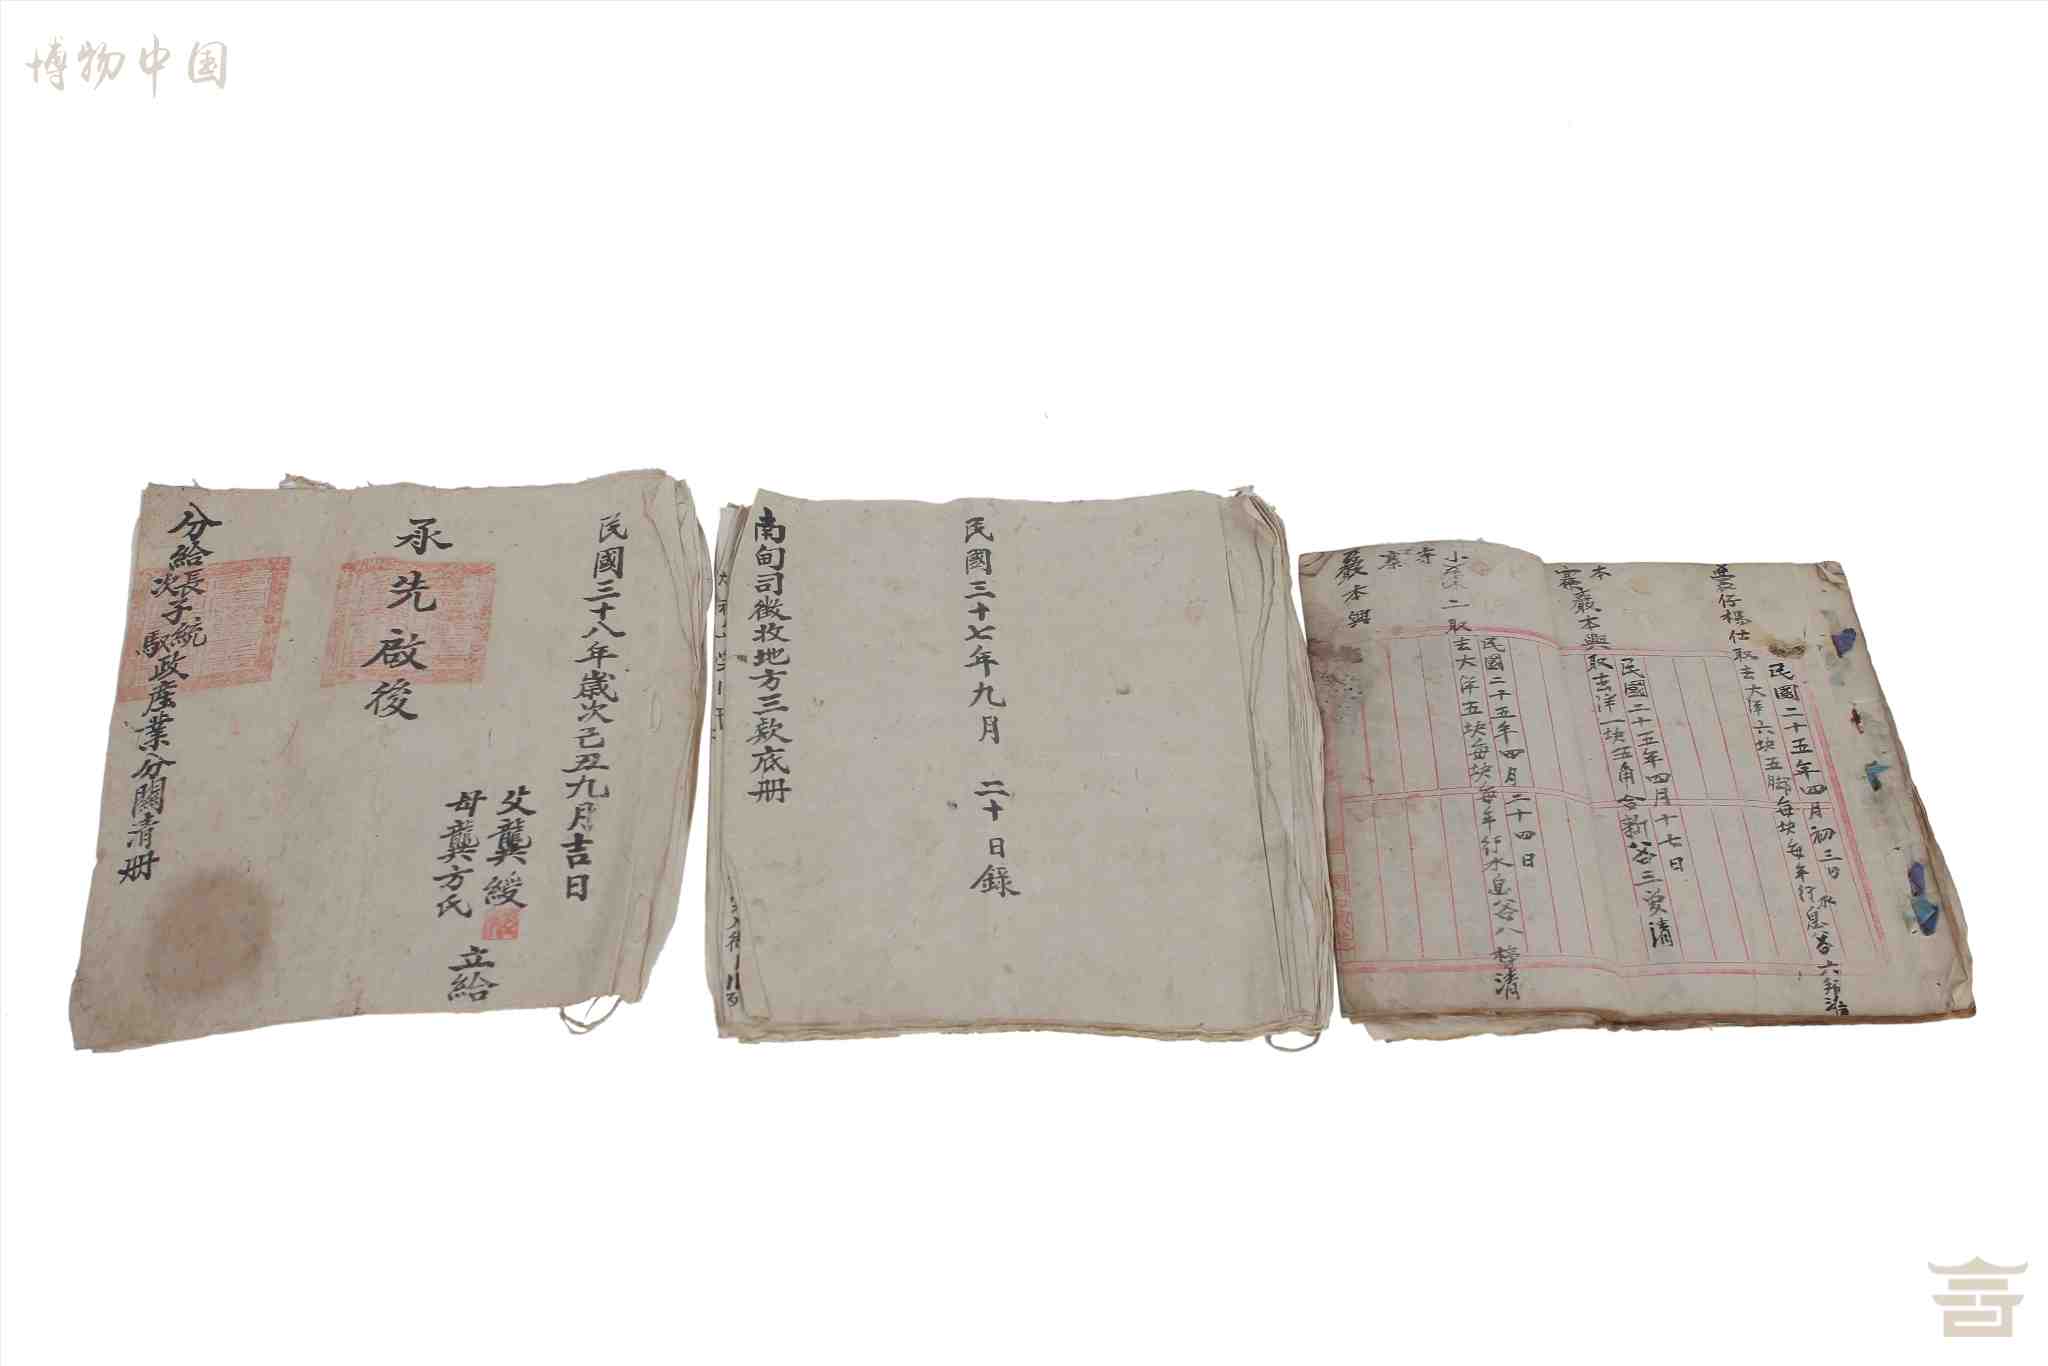 博物中国
分給長次子統馭政產業分關清册
承先啟後
民國三十八年歲次己丑九月吉日
父龔綬
母龔方氏
立給
南甸司徵收地方三欵底册
民國三十七年九月二十日錄
民國二十五年四月初三日
仔楊仕取去大洋六块五脚每块每年行水息谷六
民國二十五年四月十七日
本寨嚴本興取去洋一块五角合新谷三箩清
民國二十五年四月二十四日
二取去大洋五块每块每年行水息谷八 清
嚴本興